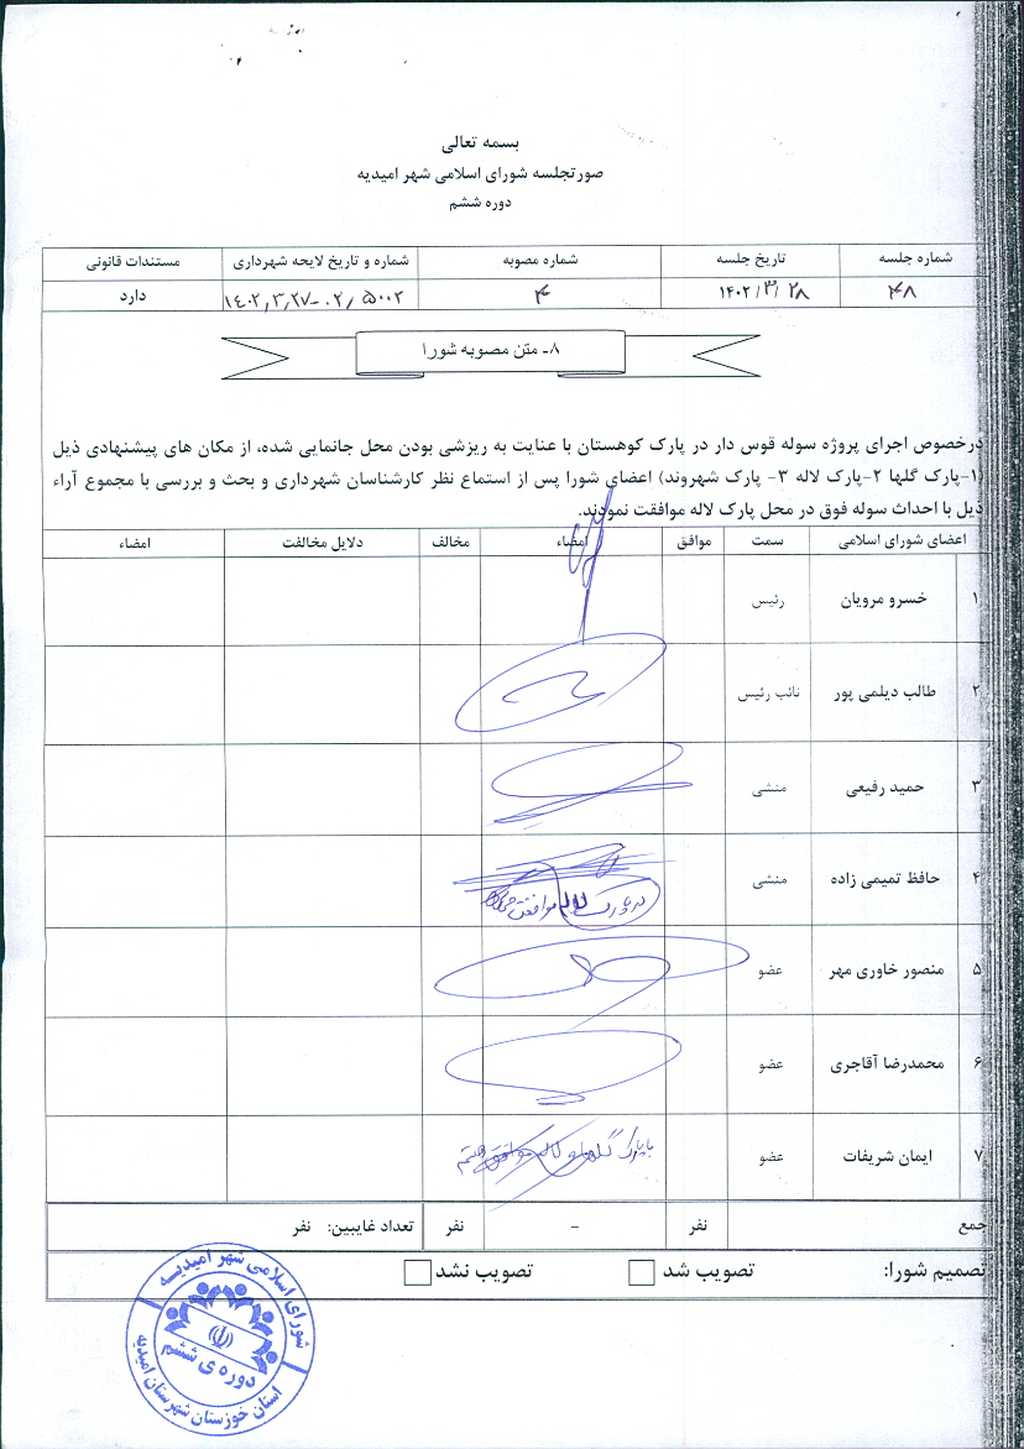 بسمه تعالی
صورتجلسه شورای اسلامی شهر امیدیه
دوره ششم
شماره جلسه تاریخ جلسه شماره مصوبه شماره و تاریخ لایحه شهرداری مستندات قانونی
۴۸ ۱۴۰۲/۳/۲۸ ۴ ۱۴۰۲,۳,۲۷-۰۲/۵۰۰۲ دارد
۸- متن مصوبه شورا
درخصوص اجرای پروژه سوله قوس دار در پارک کوهستان با عنایت به ریزشی بودن محل جانمایی شده، از مکان های پیشنهادی ذیل
(۱-پارک گلها ۲-پارک لاله ۳- پارک شهروند) اعضای شورا پس از استماع نظر کارشناسان شهرداری و بحث و بررسی با مجموع آراء
ذیل با احداث سوله فوق در محل پارک لاله موافقت نمودند.
اعضای شورای اسلامی سمت موافق امضاء مخالف دلایل مخالفت امضاء
۱ خسرو مرویان رئیس
۲ طالب دیلمی پور نائب رئیس
۳ حمید رفیعی منشی
۴ حافظ تمیمی زاده منشی
در پارک لاله موافقت
۵ منصور خاوری مهر عضو
۶ محمدرضا آقاجری عضو
۷ ایمان شریفات عضو
با پارک گلها و لاله موافق هستم
جمع نفر - نفر تعداد غایبین: نفر
تصمیم شورا: تصویب شد تصویب نشد
شورای اسلامی شهر امیدیه
دوره ی ششم
استان خوزستان شهرستان امیدیه